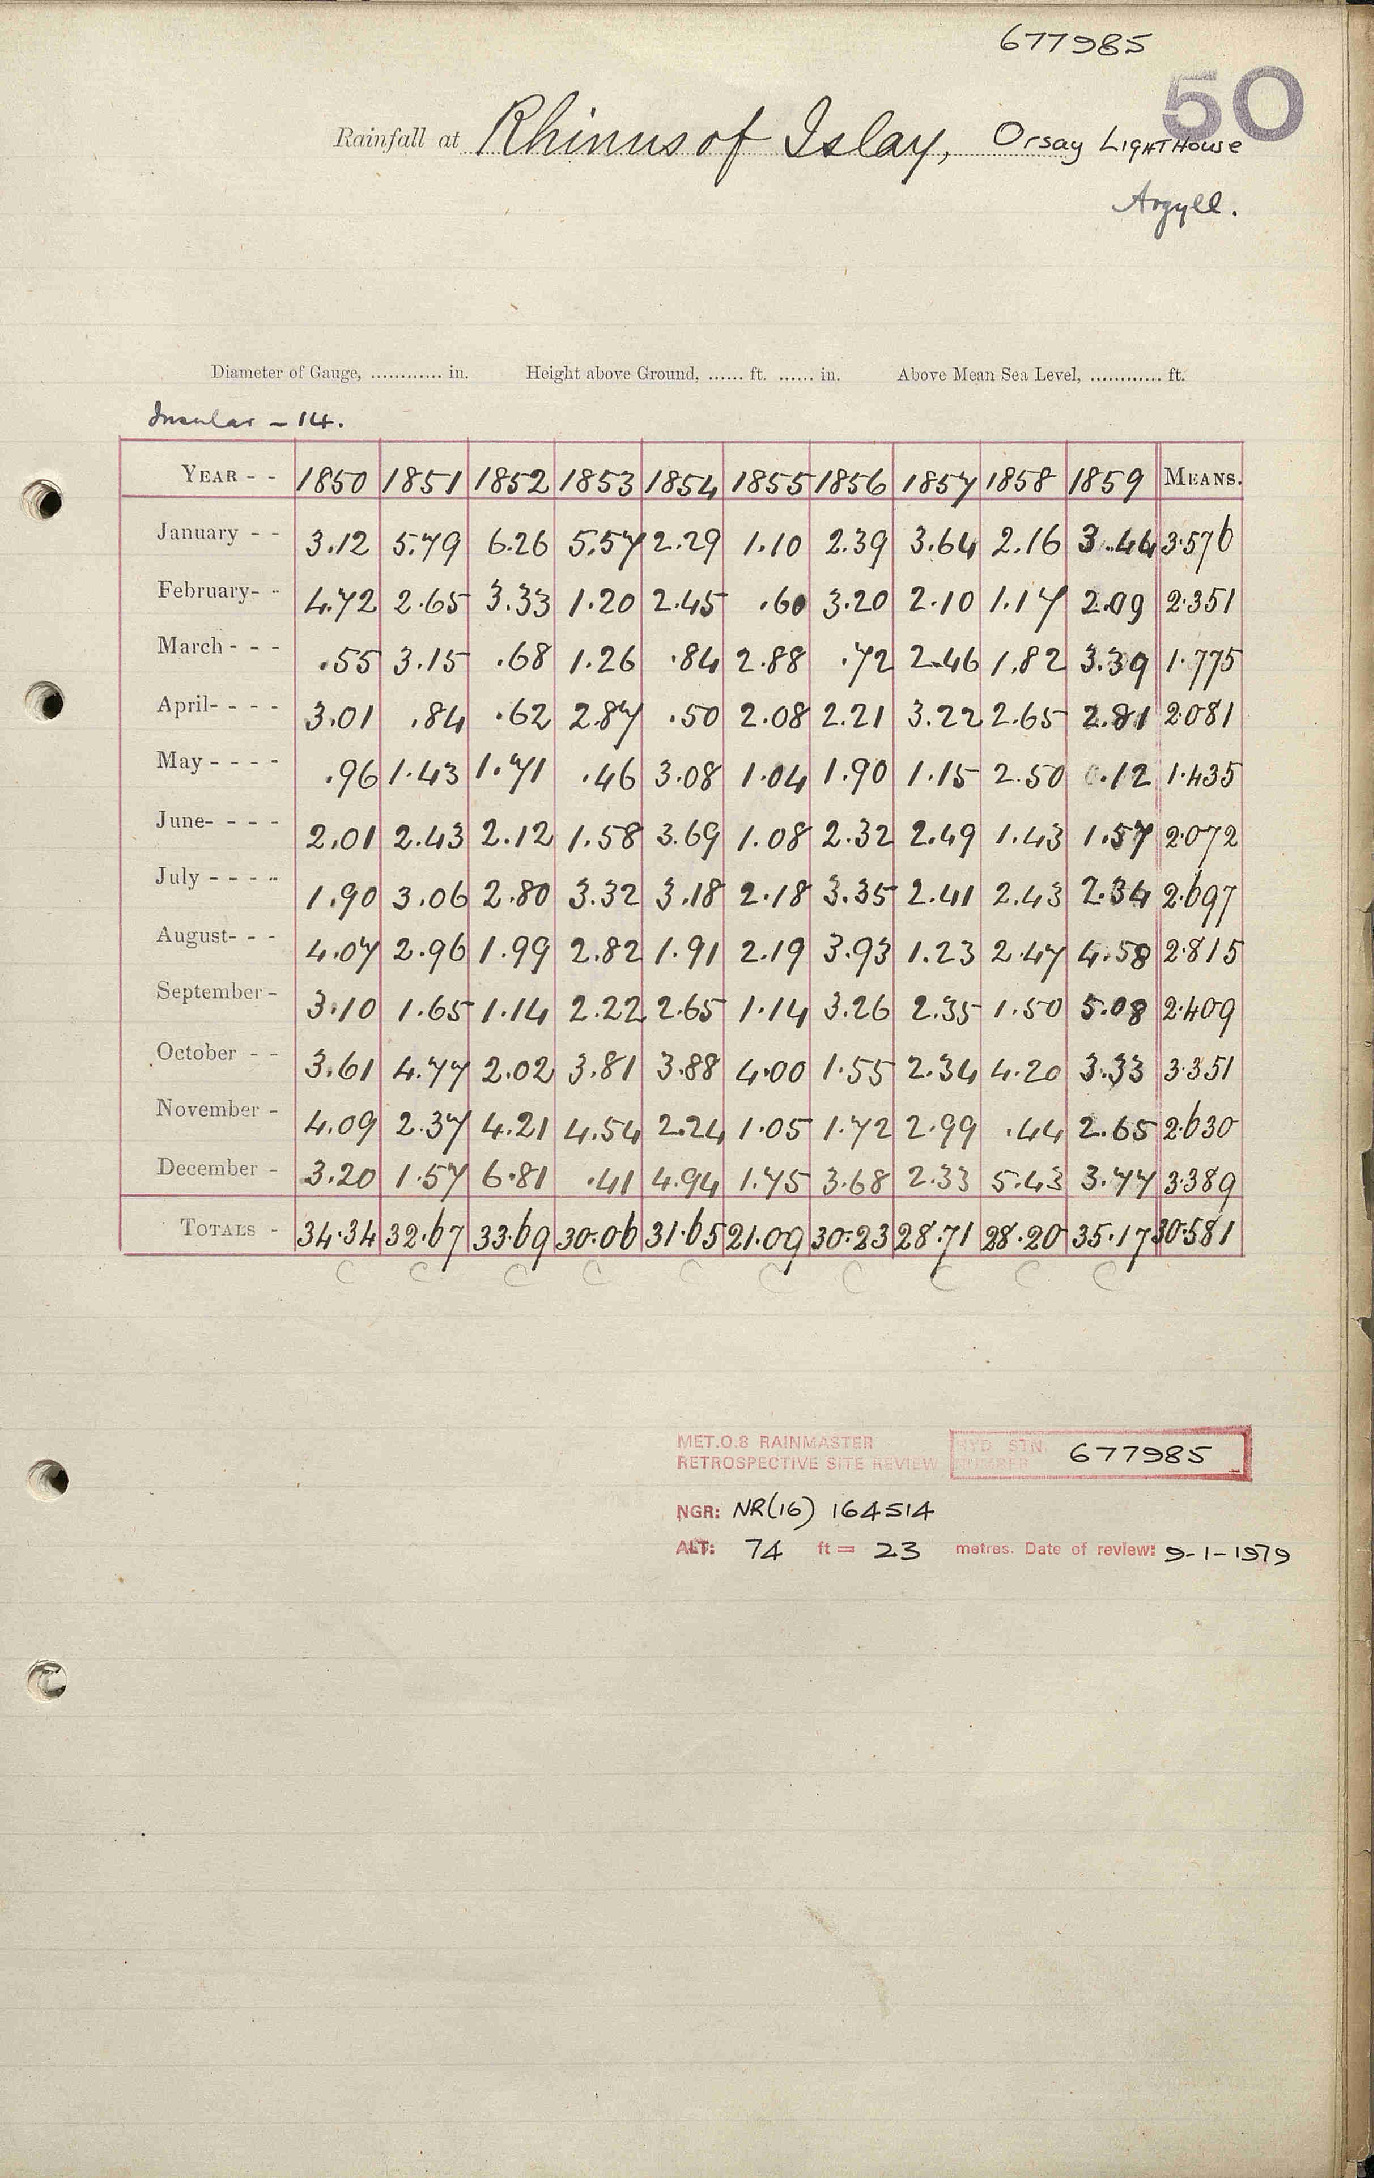 677985
50
Rainfall at Rhinns of Islay, Orsay LigHTHouse
Argyll.
Diameter of Gauge, ............ in. Height above Ground, ...... ft. ...... in. Above Mean Sea Level, ............ ft.
Insular - 14.
YEAR - - 1850 1851 1852 1853 1854 1855 1856 1857 1858 1859 MEANS.
January - - 3.12 5.79 6.26 5.57 2.29 1.10 2.39 3.64 2.16 3.44 3.576
February- - 4.72 2.65 3.33 1.20 2.45 .60 3.20 2.10 1.17 2.09 2.351
March - - - .55 3.15 .68 1.26 .84 2.88 .72 2.46 1.82 3.39 1.775
April- - - - 3.01 .84 .62 2.87 .50 2.08 2.21 3.22 2.65 2.81 2.081
May - - - - .96 1.43 1.71 .46 3.08 1.04 1.90 1.15 2.50 0.12 1.435
June- - - - 2.01 2.43 2.12 1.58 3.69 1.08 2.32 2.49 1.43 1.57 2.072
July - - - - 1.90 3.06 2.80 3.32 3.18 2.18 3.35 2.41 2.43 2.34 2.697
August- - - 4.07 2.96 1.99 2.82 1.91 2.19 3.93 1.23 2.47 4.58 2.815
September - 3.10 1.65 1.14 2.22 2.65 1.14 3.26 2.35 1.50 5.08 2.409
October - - 3.61 4.77 2.02 3.81 3.88 4.00 1.55 2.34 4.20 3.33 3.351
November - 4.09 2.37 4.21 4.54 2.24 1.05 1.72 2.99 .44 2.65 2.630
December - 3.20 1.57 6.81 .41 4.94 1.75 3.68 2.33 5.43 3.77 3.389
TOTALS - 34.34 32.67 33.69 30.06 31.65 21.09 30.23 28.71 28.20 35.17 30.581
C C C C C C C C C C
MET.O.8 RAINMASTER
RETROSPECTIVE SITE REVIEW
HYD STN. NUMBER 677985
NGR: NR(16) 164514
ALT: 74 ft = 23 metres. Date of review: 9-1-1979